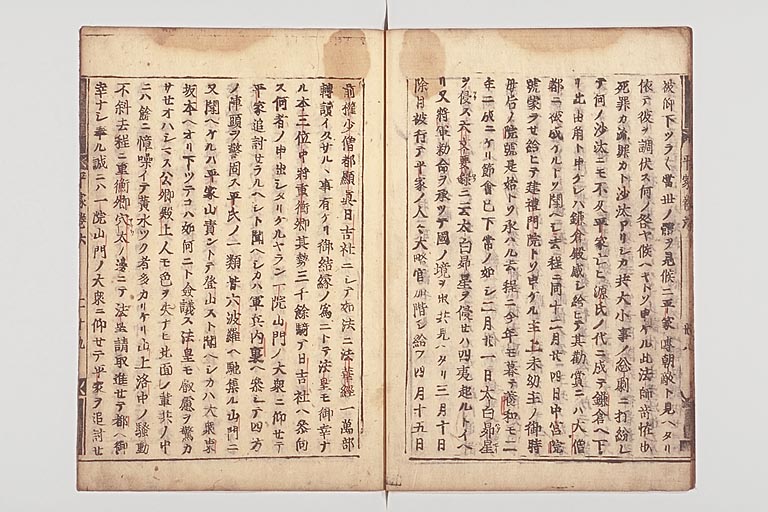 被仰下ツラく當世ノ體ヲ見候ニ平家專朝敵ト見ヘタリ
依テ彼ヲ調伏ス何ノ咎ヤ候ヘキトソ申ケル此法師奇怪也
死罪カ流罪カト沙汰アリシカ共大小事ノ怱劇ニ打紛レ
テ何ノ沙汰ニモ不及平家亡ヒ源氏ノ代ニ成テ鎌倉ヘ下
リ此由角ト申ケレハ鎌倉殿感シ給ヒテ其勸賞ニハ大僧
都ニ被成ケルトソ聞ヘシ去程ニ同十二月廿四日中宮院
號蒙ラせ給ヒテ建禮門院トソ申ケル主上未幼主ノ御時
母后ノ院號是始トソ承ハル去程ニ今年モ暮テ養和モ二
年ニ成ニケリ節會已下常ノ如シ二月廿一日太白昴星
ヲ侵ス天文要錄ニ云太白昴星ヲ侵せハ四夷起ルトイヘ
リ又將軍勅命ヲ承ツテ國ノ境ヲ出共見ヘタリ三月十日
除目被行テ平家ノ人々大略官加階シ給フ四月十五日
前權少僧都顯眞日吉社ニシテ如法ニ法華經一萬部
轉讀イタサルヽ事有ケリ御結縁ノ爲ニトテ法皇モ御幸ナ
ル本三位中將重衡卿其勢三千餘騎テ日吉社ヘ參向
ス何者ノ申出シタリケルヤラン一院山門ノ大衆ニ仰せテ
平家追討せラルヘシト聞ヘシカハ軍兵内裏ヘ參シテ四方
ノ陣頭ヲ警固ス平氏ノ一類皆六波羅ヘ馳集ル山門ニ
又聞ヘケルハ平家山責ントテ登山スト聞ヘシカハ大衆東
坂本ヘオリ下ツテコハ如何ニト僉議ス法皇モ叡慮ヲ驚カ
サせオハシマス公卿殿上人モ色ヲ失ナヒ北面ノ輩共ノ中
ニハ餘ニ憧噪イテ黃水ツク者多カリケリ山上洛中ノ騒動
不斜去程ニ重衡卿穴太ノ邊ニテ法皇請取進せテ都ヘ御
幸ナシ奉ル誠ニハ一院山門ノ大衆ニ仰せテ平家ヲ追討せ
平家巻六
二十九